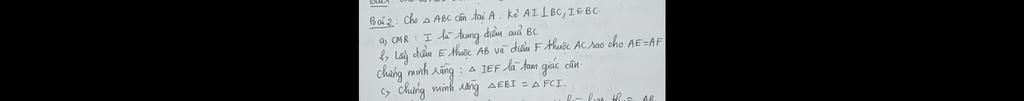 Bài 2: Cho △ ABC cân tại A. Kẻ AI ⊥ BC, I ∈ BC
a, CMR: I là trung điểm của BC
b, Lấy điểm E thuộc AB và điểm F thuộc AC sao cho AE = AF
Chứng minh rằng: △ IEF là tam giác cân.
c, Chứng minh rằng △EBI = △ FCI.